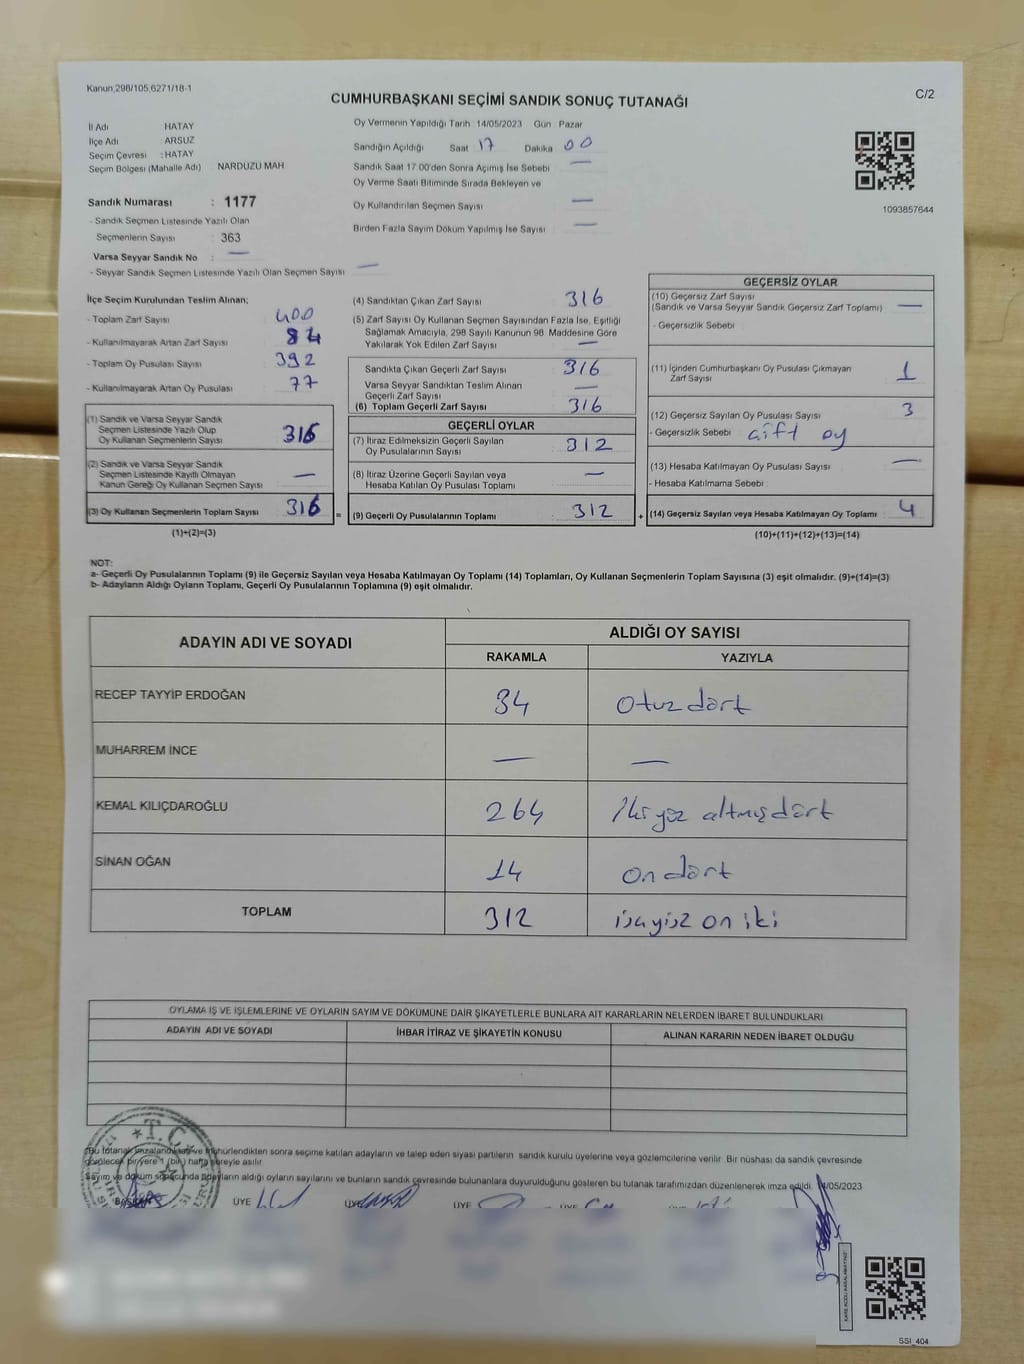 Kanun,298/105,6271/18-1
C/2
CUMHURBAŞKANI SEÇİMİ SANDIK SONUÇ TUTANAĞI
İl Adı HATAY
İlçe Adı ARSUZ
Seçim Çevresi : HATAY
Seçim Bölgesi (Mahalle Adı) NARDÜZÜ MAH
Sandık Numarası : 1177
- Sandık Seçmen Listesinde Yazılı Olan
Seçmenlerin Sayısı : 363
Varsa Seyyar Sandık No : —
- Seyyar Sandık Seçmen Listesinde Yazılı Olan Seçmen Sayısı : —
Oy Vermenin Yapıldığı Tarih : 14/05/2023 Gün : Pazar
Sandığın Açıldığı Saat : 17 Dakika : 00
Sandık Saat 17:00'den Sonra Açılmış İse Sebebi : —
Oy Verme Saati Bitiminde Sırada Bekleyen ve
Oy Kullandırılan Seçmen Sayısı : —
Birden Fazla Sayım Döküm Yapılmış İse Sayısı : —
1093857644
İlçe Seçim Kurulundan Teslim Alınan;
- Toplam Zarf Sayısı : 400
- Kullanılmayarak Artan Zarf Sayısı : 84
- Toplam Oy Pusulası Sayısı : 392
- Kullanılmayarak Artan Oy Pusulası : 77
(1) Sandık ve Varsa Seyyar Sandık
Seçmen Listesinde Yazılı Olup
Oy Kullanan Seçmenlerin Sayısı : 316
(2) Sandık ve Varsa Seyyar Sandık
Seçmen Listesinde Kayıtlı Olmayan
Kanun Gereği Oy Kullanan Seçmen Sayısı : —
(3) Oy Kullanan Seçmenlerin Toplam Sayısı : 316
(1)+(2)=(3)
(4) Sandıktan Çıkan Zarf Sayısı : 316
(5) Zarf Sayısı Oy Kullanan Seçmen Sayısından Fazla İse, Eşitliği
Sağlamak Amacıyla, 298 Sayılı Kanunun 98. Maddesine Göre
Yakılarak Yok Edilen Zarf Sayısı : —
Sandıkta Çıkan Geçerli Zarf Sayısı : 316
Varsa Seyyar Sandıktan Teslim Alınan
Geçerli Zarf Sayısı : —
(6) Toplam Geçerli Zarf Sayısı : 316
GEÇERLİ OYLAR
(7) İtiraz Edilmeksizin Geçerli Sayılan
Oy Pusulalarının Sayısı : 312
(8) İtiraz Üzerine Geçerli Sayılan veya
Hesaba Katılan Oy Pusulası Toplamı : —
= (9) Geçerli Oy Pusulalarının Toplamı : 312
GEÇERSİZ OYLAR
(10) Geçersiz Zarf Sayısı
(Sandık ve Varsa Seyyar Sandık Geçersiz Zarf Toplamı) : —
- Geçersizlik Sebebi :
(11) İçinden Cumhurbaşkanı Oy Pusulası Çıkmayan
Zarf Sayısı : 1
(12) Geçersiz Sayılan Oy Pusulası Sayısı : 3
- Geçersizlik Sebebi : çift oy
(13) Hesaba Katılmayan Oy Pusulası Sayısı : —
- Hesaba Katılmama Sebebi :
+ (14) Geçersiz Sayılan veya Hesaba Katılmayan Oy Toplamı : 4
(10)+(11)+(12)+(13)=(14)
NOT:
a- Geçerli Oy Pusulalarının Toplamı (9) ile Geçersiz Sayılan veya Hesaba Katılmayan Oy Toplamı (14) Toplamları, Oy Kullanan Seçmenlerin Toplam Sayısına (3) eşit olmalıdır. (9)+(14)=(3)
b- Adayların Aldığı Oyların Toplamı, Geçerli Oy Pusulalarının Toplamına (9) eşit olmalıdır.
ADAYIN ADI VE SOYADI
ALDIĞI OY SAYISI
RAKAMLA YAZIYLA
RECEP TAYYİP ERDOĞAN 34 otuz dört
MUHARREM İNCE — —
KEMAL KILIÇDAROĞLU 264 İki yüz altmış dört
SİNAN OĞAN 14 on dört
TOPLAM 312 üçyüz on iki
OYLAMA İŞ VE İŞLEMLERİNE VE OYLARIN SAYIM VE DÖKÜMÜNE DAİR ŞİKAYETLERLE BUNLARA AİT KARARLARIN NELERDEN İBARET BULUNDUKLARI
ADAYIN ADI VE SOYADI İHBAR İTİRAZ VE ŞİKAYETİN KONUSU ALINAN KARARIN NEDEN İBARET OLDUĞU
T.C.
Bu tutanak imzalandıktan ve mühürlendikten sonra seçime katılan adayların ve talep eden siyasi partilerin sandık kurulu üyelerine veya gözlemcilerine verilir. Bir nüshası da sandık çevresinde
görülecek bir yere 1 (bir) hafta süreyle asılır.
Sayım ve döküm sonucunda adayların aldığı oyların sayılarını ve bunların sandık çevresinde bulunanlara duyurulduğunu gösteren bu tutanak tarafımızdan düzenlenerek imza edildi. 14/05/2023
BAŞKAN ÜYE ÜYE ÜYE ÜYE ÜYE
SSİ_404